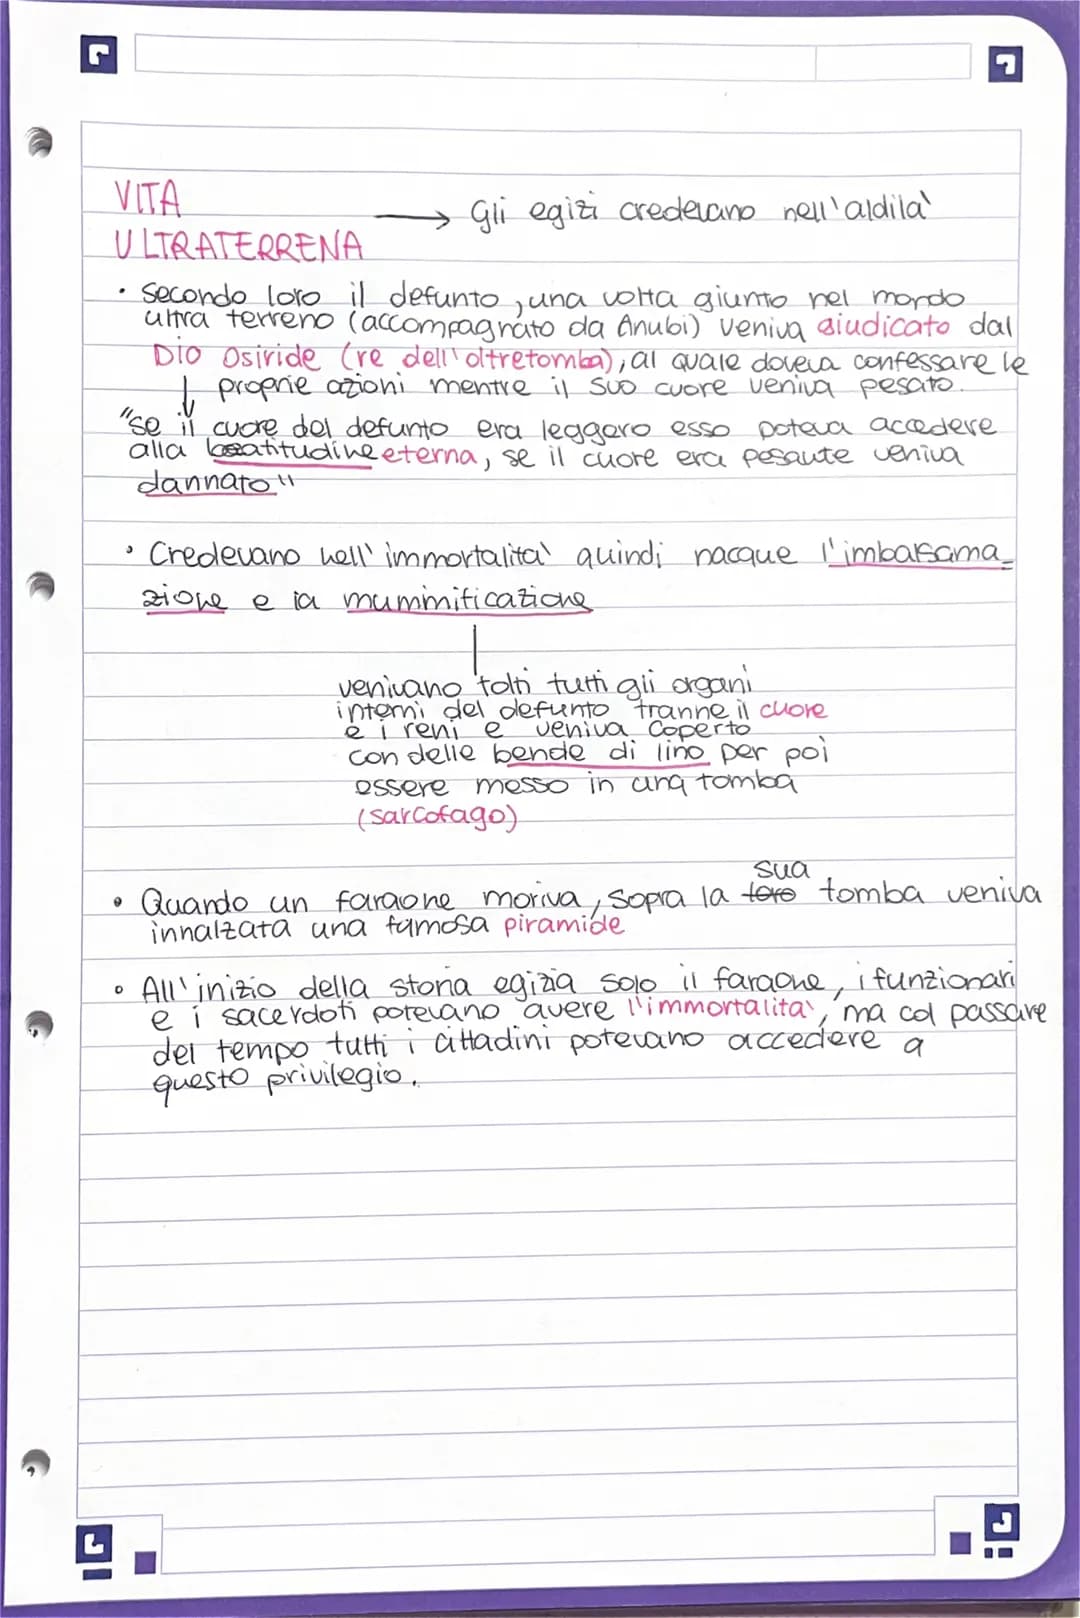 VITA
ULTRATERRENA → Gli egizi credevano nell'aldila'
• Secondo loro il defunto, una volta giunto nel mondo
ultra terreno (accompagnato da Anubi) veniva giudicato dal
Dio Osiride (re dell'oltretomba), al quale doveva confessare le
proprie azioni mentre il suo cuore veniva pesato.
"se il cuore del defunto era leggero esso poteva accedere
alla beatitudine eterna, se il cuore era pesante veniva
dannato"
• Credevano nell'immortalita' quindi nacque l'imbalsama_
zione e la mummificazione
venivano tolti tutti gli organi
interni del defunto tranne il cuore
e i reni e veniva coperto
con delle bende di lino per poi
essere messo in una tomba
(sarcofago)
sua
• Quando un faraone moriva, sopra la loro tomba veniva
innalzata una famosa piramide
• All'inizio della storia egizia solo il faraone, i funzionari
e i sacerdoti potevano avere l'immortalita', ma col passare
del tempo tutti i cittadini potevano accedere a
questo privilegio.